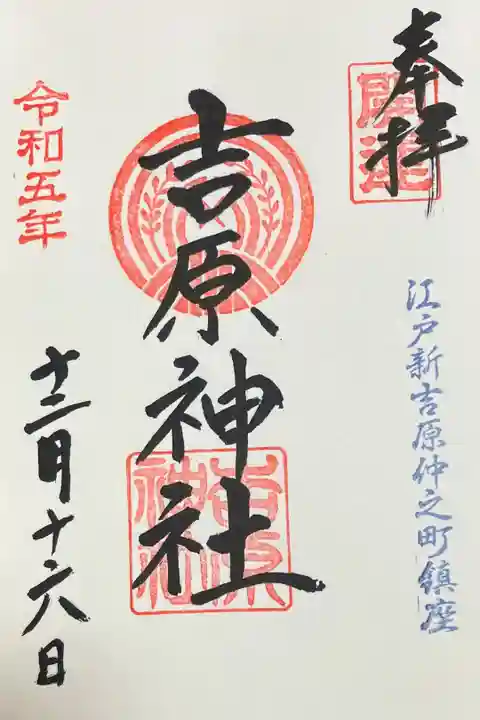 奉拝
開運
江戸新吉原仲之町鎮座
吉原神社
吉原神社
令和五年
十二月十六日